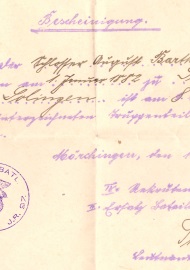 Bescheinigung.
der Schlosser August Barth
am 1. Januar 1882 zu
Solingen ist am
unterzeichneten Truppenteil
Mörchingen, den 1
Rekruten
II. Ersatz Batail
Leutnant
BATL.
J.R. 97.